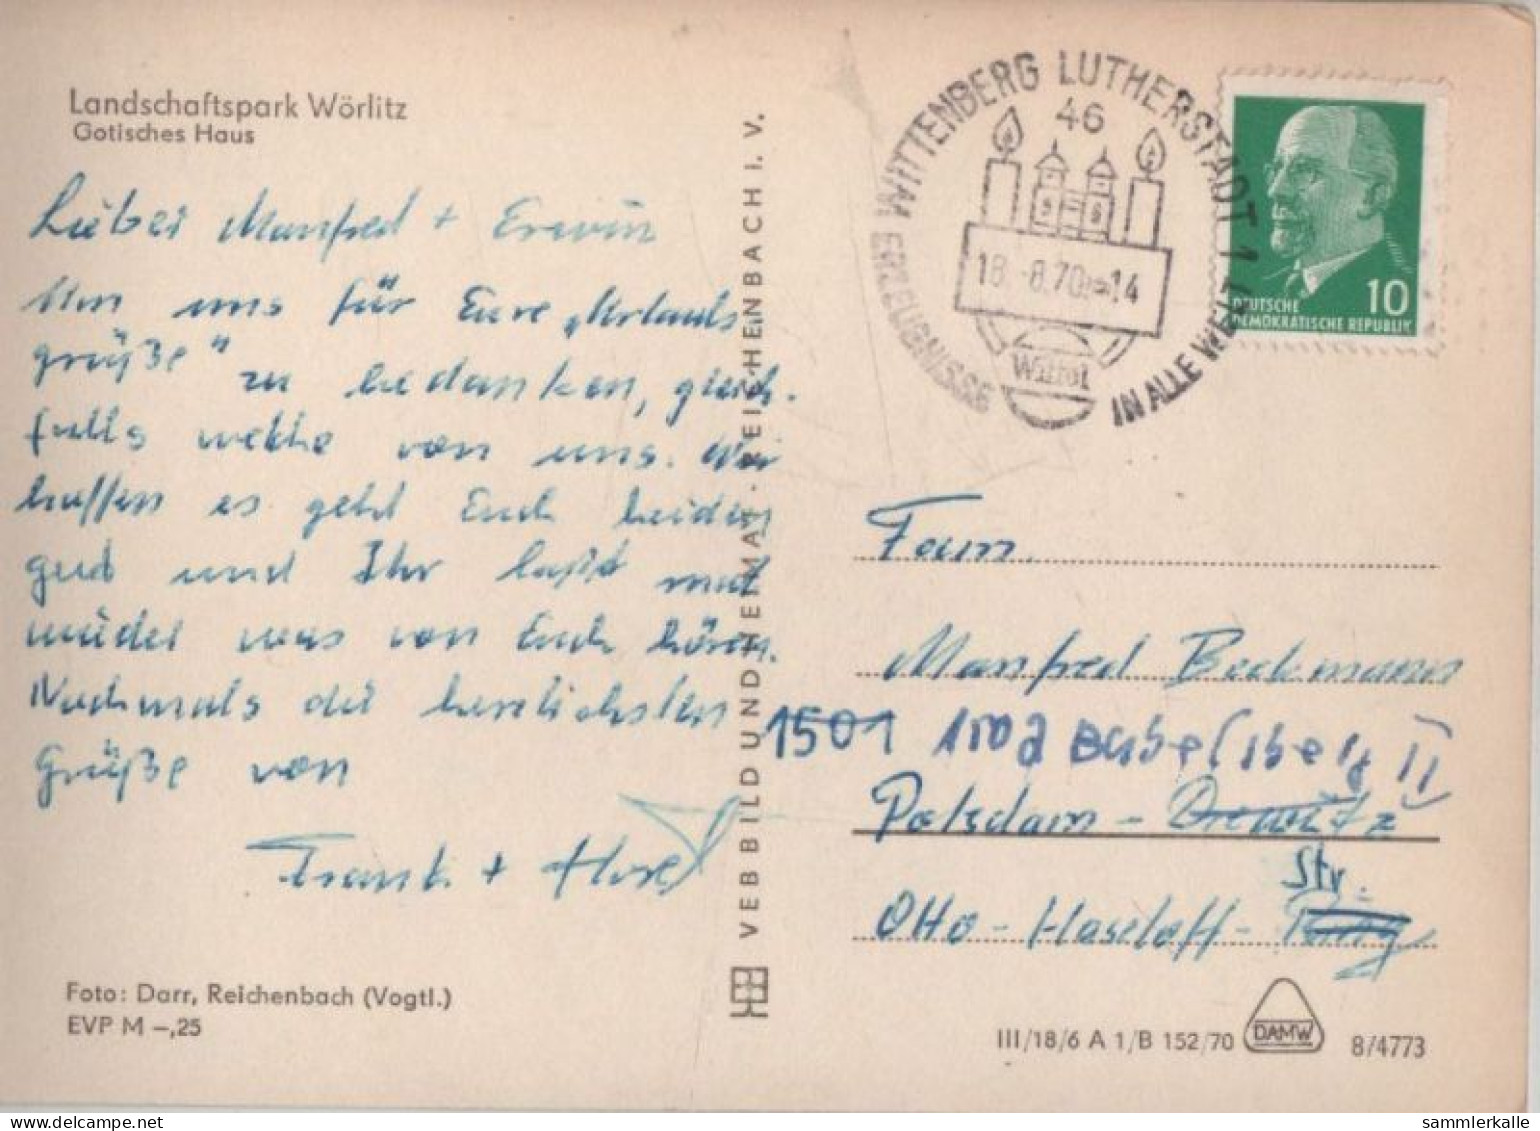 Landschaftspark Wörlitz
Gotisches Haus
Lieber Manfred + Erwin
Um uns für Eure „Urlaubs
grüße“ zu bedanken, gleich-
falls welche von uns. Wir
hoffen es geht Euch beiden
gut und Ihr laßt mal
wieder was von Euch hören.
Nochmals die herzlichsten
Grüße von
Frank +
Foto: Darr, Reichenbach (Vogtl.)
EVP M –,25
VEB BILD UND HEIMAT · REICHENBACH I. V.
WITTENBERG LUTHERSTADT 1
46
18.-8.70 -14
Wittol
ERZEUGNISSE
IN ALLE WELT
10
DEUTSCHE
DEMOKRATISCHE REPUBLIK
Fam.
Manfred Beckmann
1501 1502 Babelsberg II
Potsdam - Drewitz
Str.
Otto-Haseloff-Ring
III/18/6 A 1/B 152/70
DAMW
8/4773
sammlerkalle